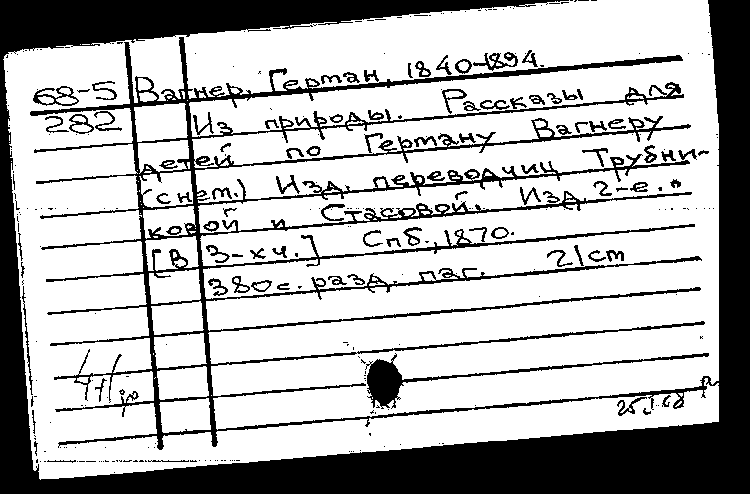 68-5 Вагнер, Герман, 1840-1894.
282 Из природы. Рассказы для
детей по Герману Вагнеру
(с нем.) Изд. переводчиц Трубни-
ковой и Стасовой. Изд. 2-е.
[В 3-х ч.] Спб., 1870.
380 с. разд. паг. 21 cm